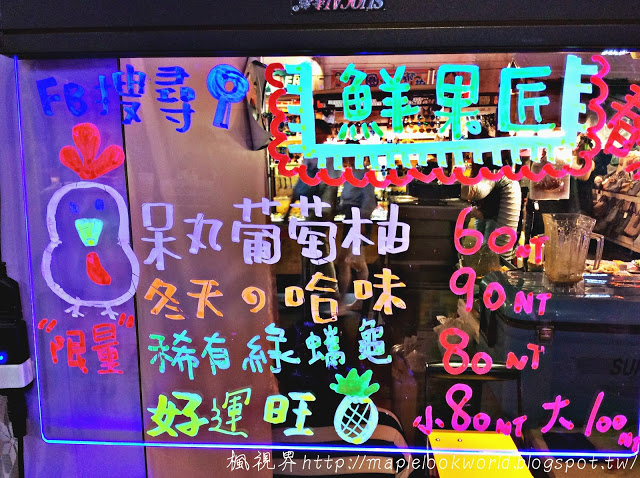 FB搜尋 鮮果匠 春
呆丸葡萄柚 60NT
冬天の哈味 90NT
"限量" 稀有綠蠵龜 80NT
好運旺 小80NT 大100NT
楓視界http://maplelookworld.blogspot.tw/